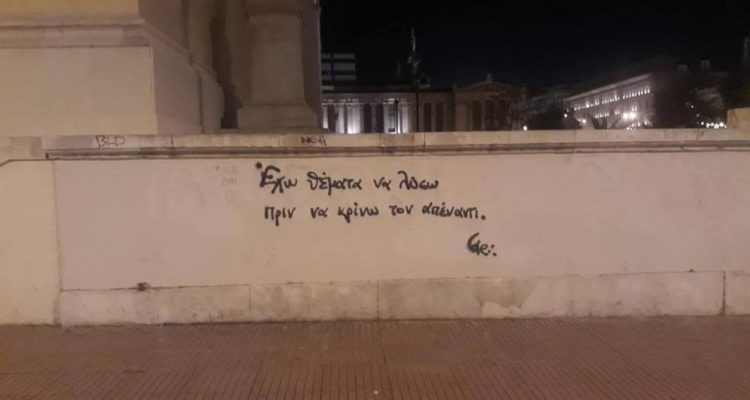 BLD
Έχω θέματα να λύσω
πριν να κρίνω τον απέναντι.
Ge: